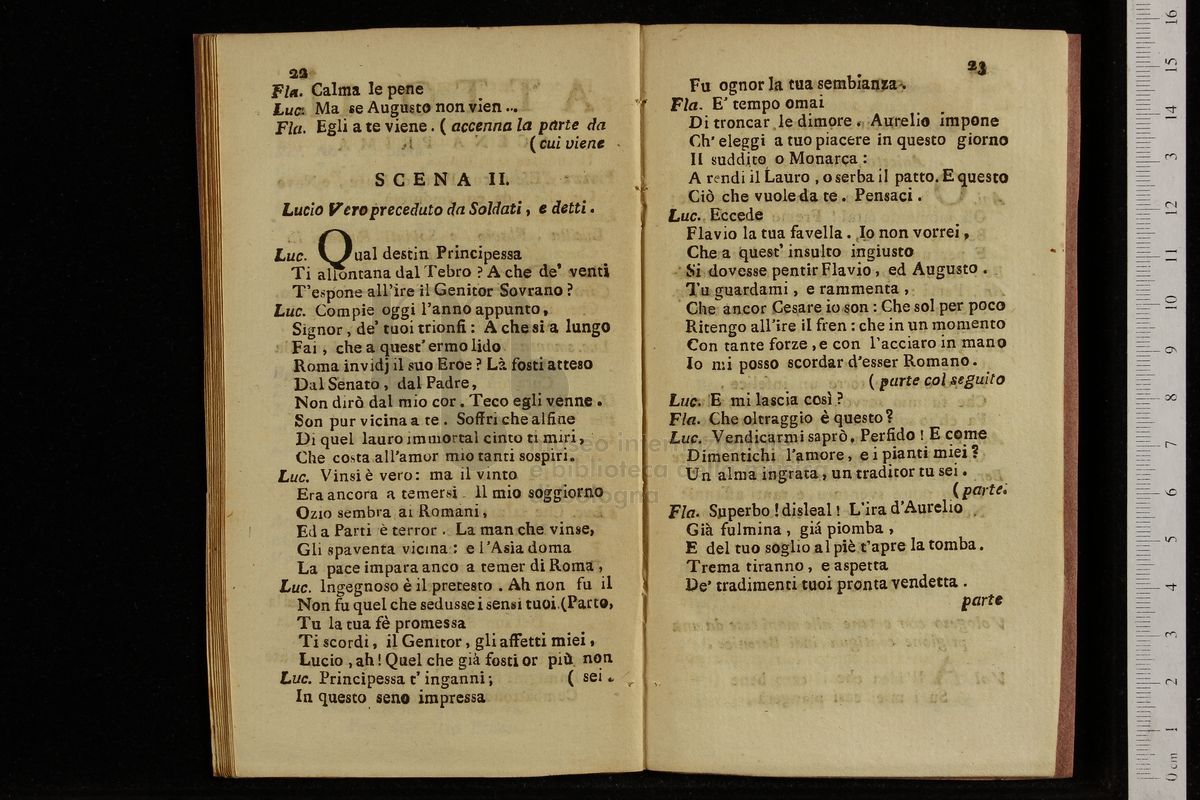 22
Fla. Calma le pene
Luc. Ma se Augusto non vien ...
Fla. Egli a te viene. ( accenna la parte da
( cui viene
SCENA II.
Lucio Vero preceduto da Soldati, e detti.
Luc. Qual destin Principessa
Ti allontana dal Tebro ? A che de' venti
T'espone all'ire il Genitor Sovrano ?
Luc. Compie oggi l'anno appunto,
Signor, de' tuoi trionfi : A che si a lungo
Fai, che a quest' ermo lido
Roma invidj il suo Eroe ? Là fosti atteso
Dal Senato, dal Padre,
Non dirò dal mio cor. Teco egli venne.
Son pur vicina a te. Soffri che alfine
Di quel lauro immortal cinto ti miri,
Che costa all'amor mio tanti sospiri.
Luc. Vinsi è vero: ma il vinto
Era ancora a temersi Il mio soggiorno
Ozio sembra ai Romani,
Ed a Parti è terror. La man che vinse,
Gli spaventa vicina : e l'Asia doma
La pace impara anco a temer di Roma,
Luc. Ingegnoso è il pretesto. Ah non fu il
Non fu quel che sedusse i sensi tuoi.(Parto,
Tu la tua fè promessa
Ti scordi, il Genitor, gli affetti miei,
Lucio, ah! Quel che già fosti or più non
Luc. Principessa t' inganni; ( sei.
In questo seno impressa
23
Fu ognor la tua sembianza.
Fla. E' tempo omai
Di troncar le dimore. Aurelio impone
Ch' eleggi a tuo piacere in questo giorno
Il suddito o Monarca :
A rendi il Lauro, o serba il patto. E questo
Ciò che vuole da te. Pensaci.
Luc. Eccede
Flavio la tua favella. Io non vorrei,
Che a quest' insulto ingiusto
Si dovesse pentir Flavio, ed Augusto.
Tu guardami, e rammenta,
Che ancor Cesare io son : Che sol per poco
Ritengo all'ire il fren : che in un momento
Con tante forze, e con l'acciaro in mano
Io mi posso scordar d'esser Romano.
( parte col seguito
Luc. E mi lascia così ?
Fla. Che oltraggio è questo?
Luc. Vendicarmi saprò, Perfido ! E come
Dimentichi l'amore, e i pianti miei ?
Un alma ingrata, un traditor tu sei.
( parte.
Fla. Superbo ! disleal ! L'ira d'Aurelio
Già fulmina, giá piomba,
E del tuo soglio al piè t'apre la tomba.
Trema tiranno, e aspetta
De' tradimenti tuoi pronta vendetta.
parte